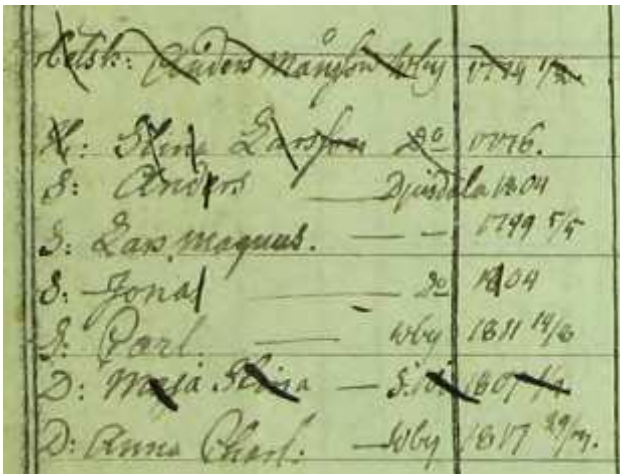 Anders Månsson Wby 1774
H: Stina Larsson Do 1776.
S: Anders Djursdala 1804
S: Lars Magnus. — — 1799 5/5
S: Jonas — Do 1804
S: Carl. — Wby 1811 14/6
D: Maja Stina — 1807
D: Anna Charl. — Wby 1817